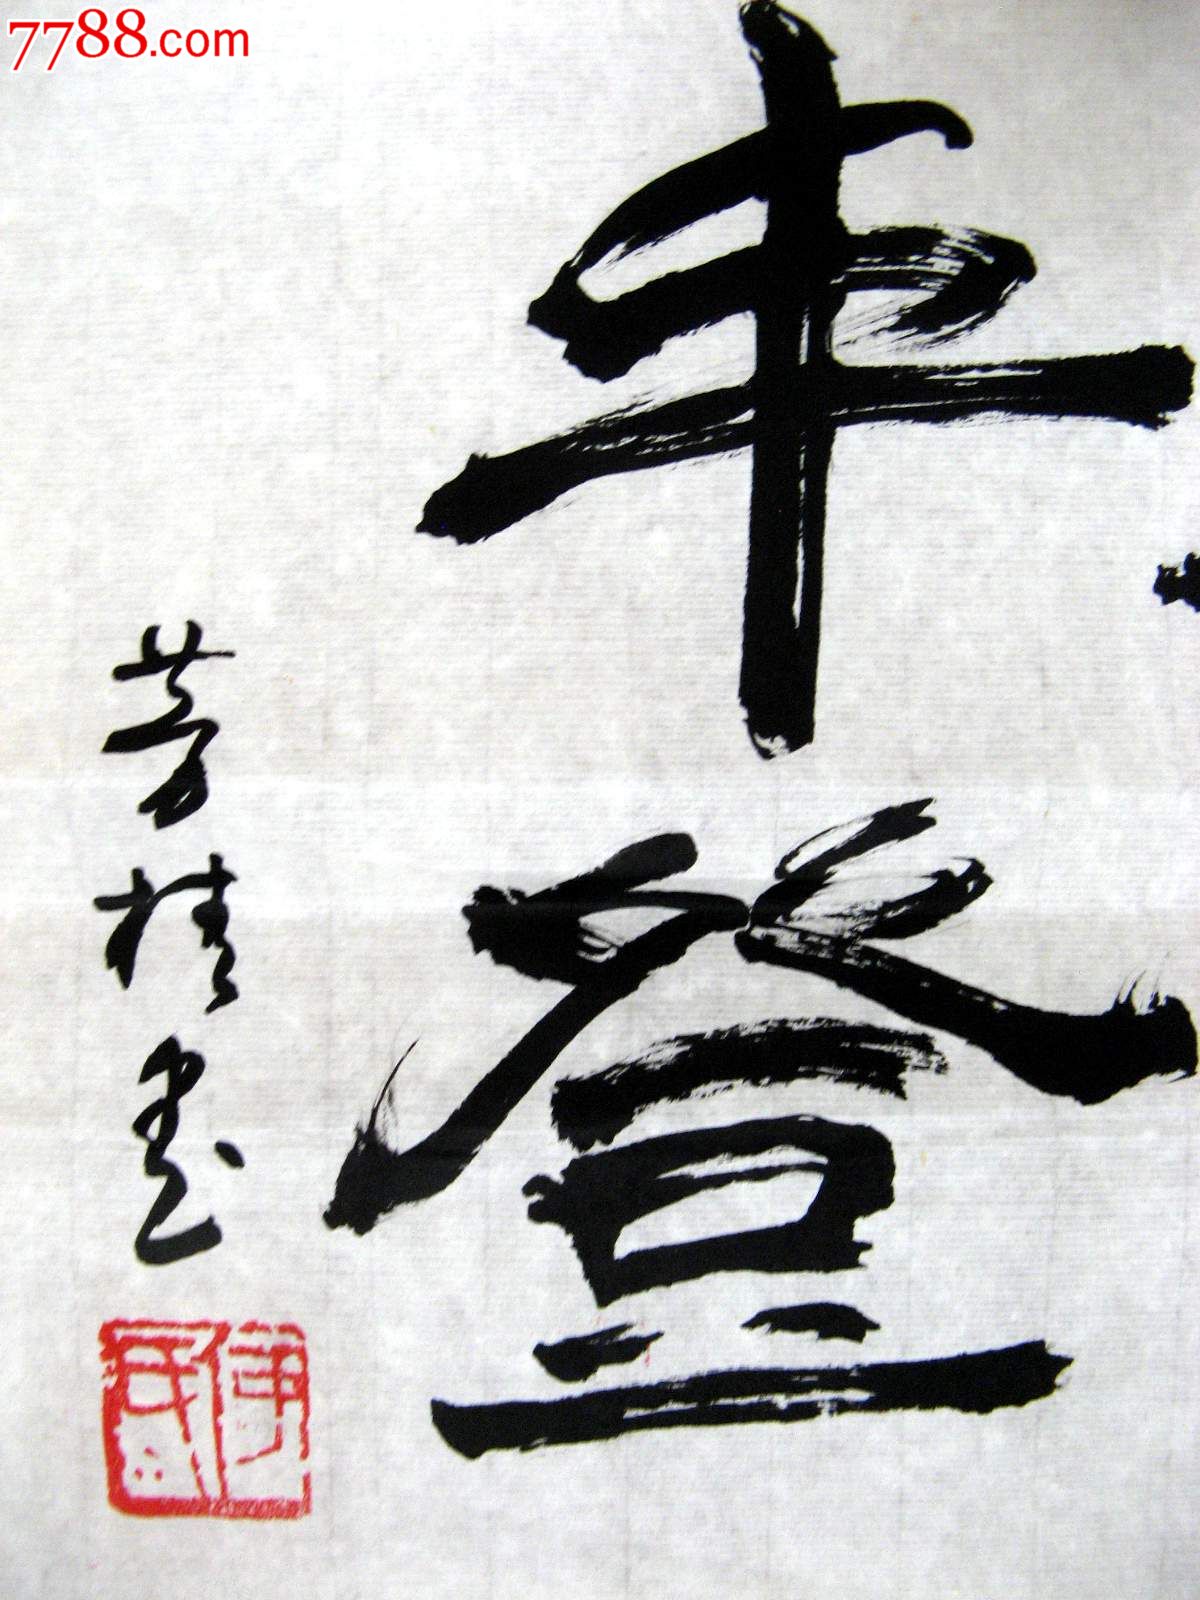 7788.com
丰登
芳桂书